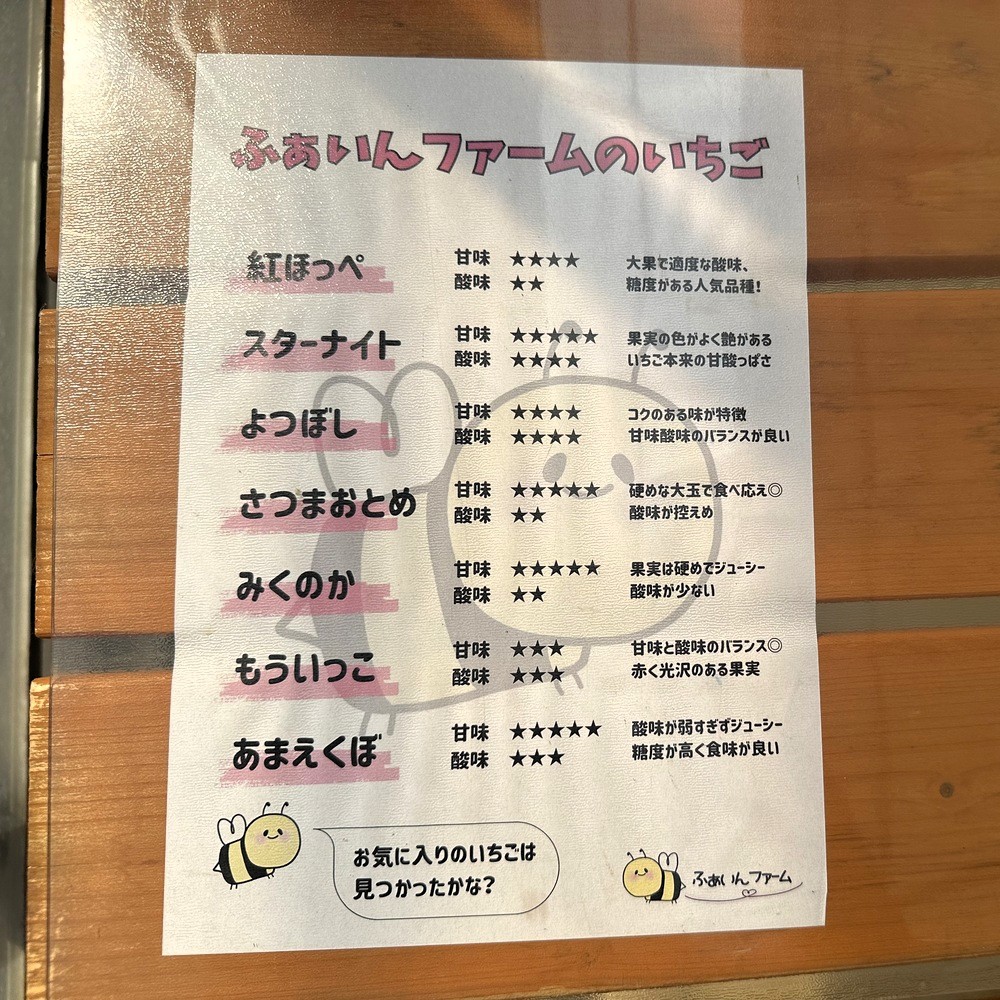 ふぁいんファームのいちご
紅ほっぺ
甘味 ★★★★
酸味 ★★
大果で適度な酸味、
糖度がある人気品種!
スターナイト
甘味 ★★★★★
酸味 ★★★★
果実の色がよく艶がある
いちご本来の甘酸っぱさ
よつぼし
甘味 ★★★★
酸味 ★★★★
コクのある味が特徴
甘味酸味のバランスが良い
さつまおとめ
甘味 ★★★★★
酸味 ★★
硬めな大玉で食べ応え◎
酸味が控えめ
みくのか
甘味 ★★★★★
酸味 ★★
果実は硬めでジューシー
酸味が少ない
もういっこ
甘味 ★★★
酸味 ★★★
甘味と酸味のバランス◎
赤く光沢のある果実
あまえくぼ
甘味 ★★★★★
酸味 ★★★
酸味が弱すぎずジューシー
糖度が高く食味が良い
お気に入りのいちごは
見つかったかな?
ふぁいんファーム